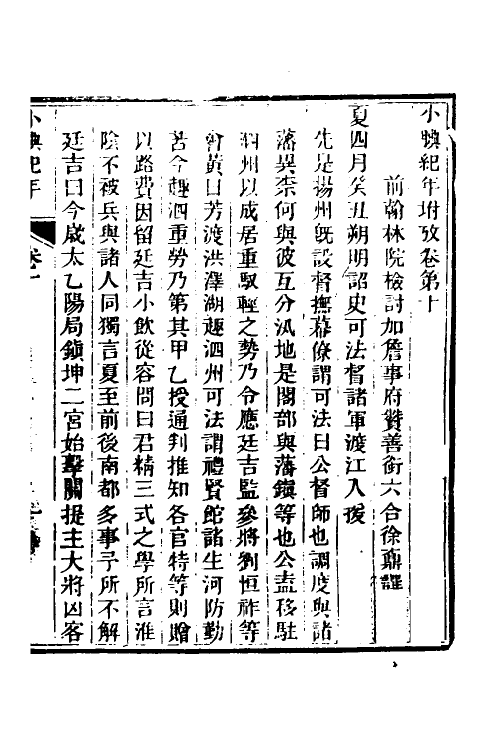 小腆紀年附攷卷第十
前翰林院檢討加詹事府贊善銜六合徐鼒譔
夏四月癸丑朔明詔史可法督諸軍渡江入援
先是揚州旣設督撫幕僚謂可法曰公督師也調度與諸
藩異柰何與彼互分汛地是閣部與藩鎭等也公盍移駐
泗州以成居重馭輕之勢乃令應廷吉監參將劉恒祚等
會黃日芳渡洪澤湖趣泗州可法謂禮賢館諸生河防勤
苦今趣泗重勞乃第其甲乙授通判推知各官特等則贈
以路費因留廷吉小飮從容問曰君精三式之學所言淮
陰不被兵與諸人同獨言夏至前後南都多事予所不解
廷吉曰今歲太乙陽局鎭坤二宮始擊關提主大將囚客
小腆紀年
卷十